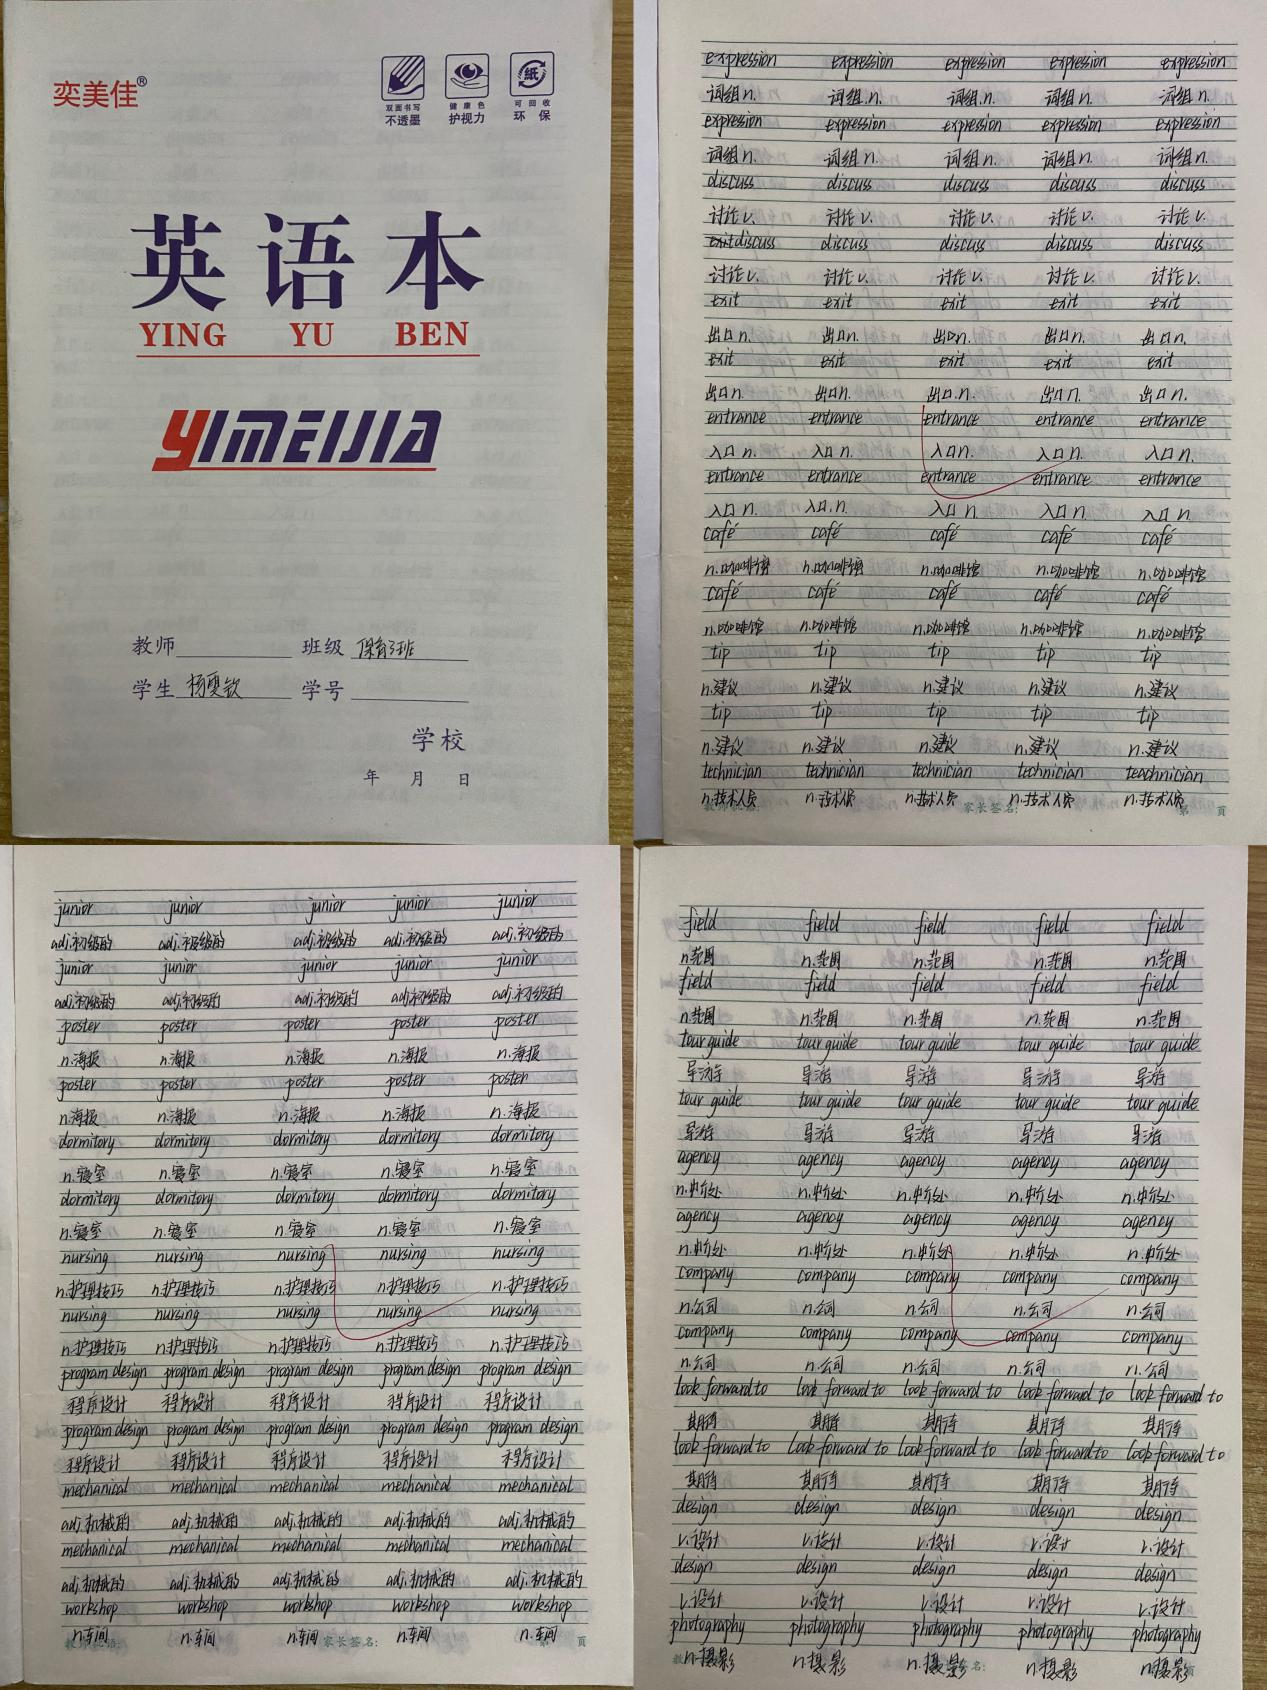 奕美佳®
双面书写 健康色 可回收
不透墨 护视力 环保
英语本
YING YU BEN
YIMEIJIA
教师 班级 保育3班
学生 杨雯钦 学号
学校
年 月 日
expression expression expression expression expression
词组n. 词组.n. 词组n. 词组n. 词组n.
expression expression expression expression expression
词组n. 词组n. 词组n. 词组n. 词组n.
discuss discuss discuss discuss discuss
讨论v. 讨论v. 讨论v. 讨论v. 讨论v.
discuss discuss discuss discuss discuss
讨论v. 讨论v. 讨论v. 讨论v. 讨论v.
exit exit exit exit exit
出口n. 出口n. 出口n. 出口n. 出口n.
exit exit exit exit exit
出口n. 出口n. 出口.n. 出口n. 出口n.
entrance entrance entrance entrance entrance
入口n. 入口n. 入口n. 入口n. 入口n.
entrance entrance entrance entrance entrance
入口n. 入口.n. 入口n. 入口n. 入口n.
café café café café café
n.咖啡馆 n.咖啡馆 n.咖啡馆 n.咖啡馆 n.咖啡馆
café café café café café
n.咖啡馆 n.咖啡馆 n.咖啡馆 n.咖啡馆 n.咖啡馆
tip tip tip tip tip
n.建议 n.建议 n.建议 n.建议 n.建议
tip tip tip tip tip
n.建议 n.建议 n.建议 n.建议 n.建议
technician technician technician technician teachnician
n.技术人员 n.技术人员 n.技术人员 n.技术人员 n.技术人员
家长签名: 第 页
junior junior junior junior junior
adj.初级的 adj.初级的 adj.初级的 adj.初级的 adj.初级的
junior junior junior junior junior
adj.初级的 adj.初级的 adj.初级的 adj初级的 adj.初级的
poster poster poster poster poster
n.海报 n.海报 n.海报 n.海报 n.海报
poster poster poster poster poster
n.海报 n.海报 n.海报 n.海报 n.海报
dormitory dormitory dormitory dormitory dormitory
n.寝室 n.寝室 n.寝室 n.寝室 n.寝室
dormitory dormitory dormitory dormitory dormitory
n.寝室 n.寝室 n.寝室 n.寝室 n.寝室
nursing nursing nursing nursing nursing
n.护理技巧 n.护理技巧 n.护理技巧 n.护理技巧 n.护理技巧
nursing nursing nursing nursing nursing
n.护理技巧 n.护理技巧 n.护理技巧 n.护理技巧 n.护理技巧
program design program design program design program design program design
程序设计 程序设计 程序设计 程序设计 程序设计
program design program design program design program design program design
程序设计 程序设计 程序设计 程序设计 程序设计
mechanical mechanical mechanical mechanical mechanical
adj.机械的 adj.机械的 adj.机械的 adj.机械的 adj.机械的
mechanical mechanical mechanical mechanical mechanical
adj.机械的 adj.机械的 adj.机械的 adj.机械的 adj.机械的
workshop workshop workshop workshop workshop
n.车间 n.车间 n.车间 n.车间 n.车间
家长签名: 页
field field field field field
n.范围 n.范围 n.范围 n.范围 n.范围
field field field field field
n.范围 n.范围 n.范围 n.范围 n.范围
tour guide tour guide tour guide tour guide tour guide
导游 导游 导游 导游 导游
tour guide tour guide tour guide tour guide tour guide
导游 导游 导游 导游 导游
agency agency agency agency agency
n.中介处 n.中介处 n.中介处 n.中介处 n.中介处
agency agency agency agency agency
n.中介处 n.中介处 n.中介处 n.中介处 n.中介处
company company company company company
n.公司 n.公司 n.公司 n.公司 n.公司
company company company company company
n.公司 n.公司 n.公司 n.公司 n.公司
look forward to look forward to look forward to look forward to look forward to
期待 期待 期待 期待 期待
look forward to look forward to look forward to look forward to look forward to
期待 期待 期待 期待 期待
design design design design design
v.设计 v.设计 v.设计 v.设计 v.设计
design design design design design
v.设计 v.设计 v.设计 v.设计 v.设计
photography photography photography photography photography
n.摄影 n.摄影 n.摄影 n.摄影 n.摄影